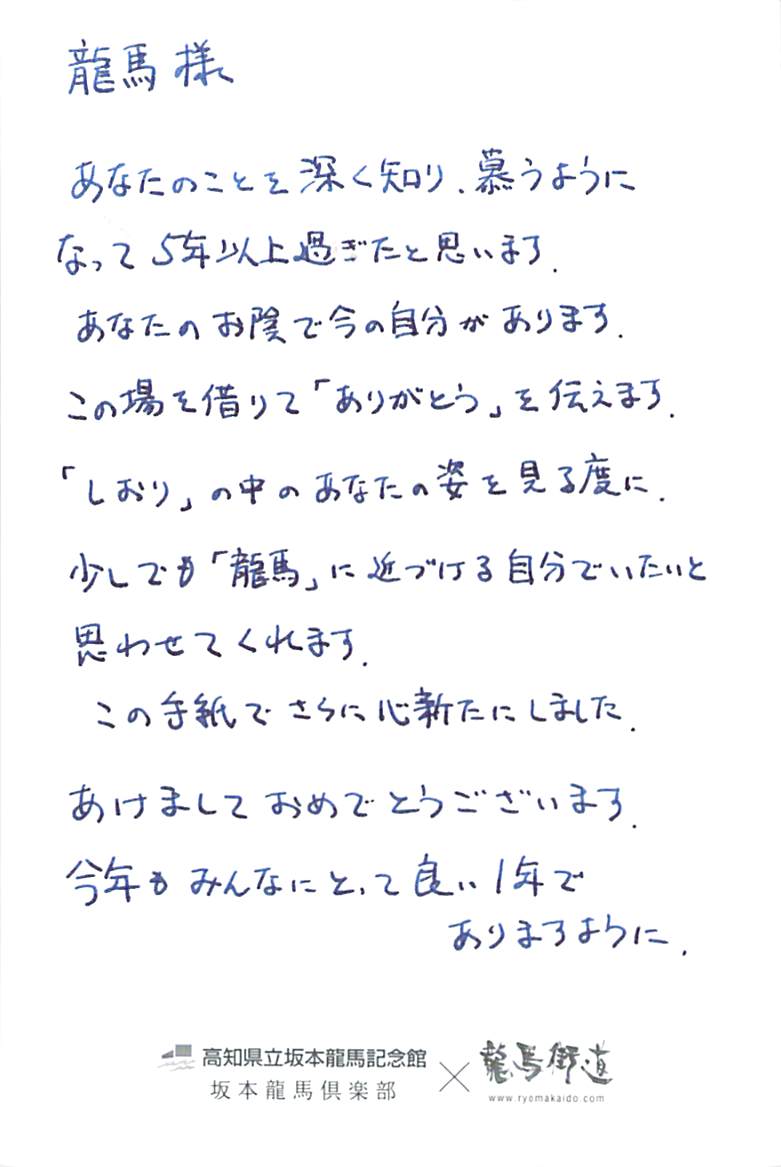 龍馬様
あなたのことを深く知り、慕うように
なって5年以上過ぎたと思います。
あなたのお陰で今の自分があります。
この場を借りて「ありがとう」を伝えます。
「しおり」の中のあなたの姿を見る度に、
少しでも「龍馬」に近づける自分でいたいと
思わせてくれます。
この手紙でさらに心新たにしました。
あけましておめでとうございます。
今年もみんなにとって良い1年で
ありますように。
高知県立坂本龍馬記念館
坂本龍馬倶楽部
×
龍馬街道
www.ryomakaido.com